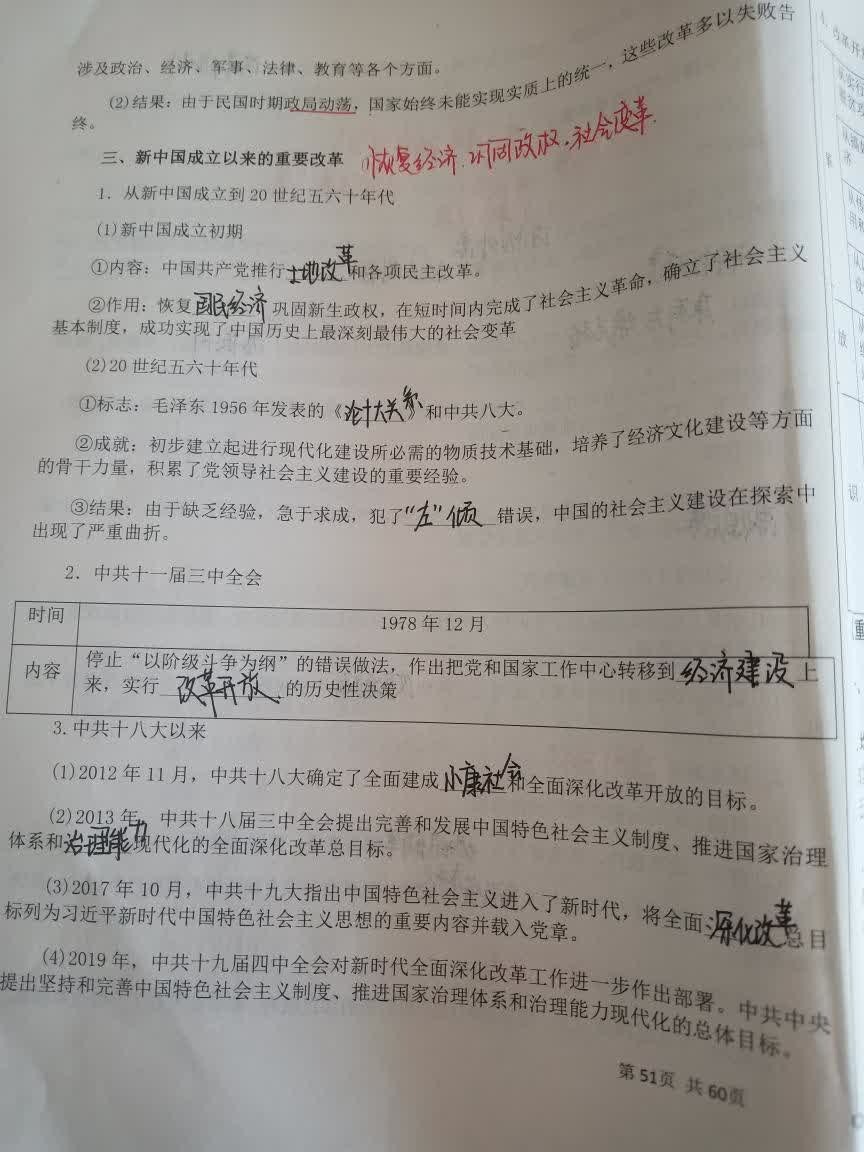 涉及政治、经济、军事、法律、教育等各个方面。
(2)结果：由于民国时期政局动荡，国家始终未能实现实质上的统一，这些改革多以失败告
终。
三、新中国成立以来的重要改革 恢复经济.巩固政权.社会变革.
1．从新中国成立到 20 世纪五六十年代
(1)新中国成立初期
①内容：中国共产党推行土地改革和各项民主改革。
②作用：恢复国民经济巩固新生政权，在短时间内完成了社会主义革命，确立了社会主义
基本制度，成功实现了中国历史上最深刻最伟大的社会变革
(2)20 世纪五六十年代
①标志：毛泽东 1956 年发表的《论十大关系》和中共八大。
②成就：初步建立起进行现代化建设所必需的物质技术基础，培养了经济文化建设等方面
的骨干力量，积累了党领导社会主义建设的重要经验。
③结果：由于缺乏经验，急于求成，犯了“左”倾错误，中国的社会主义建设在探索中
出现了严重曲折。
2．中共十一届三中全会
时间 1978 年 12 月
内容 停止“以阶级斗争为纲”的错误做法，作出把党和国家工作中心转移到经济建设上
来，实行改革开放的历史性决策
3.中共十八大以来
(1)2012 年 11 月，中共十八大确定了全面建成小康社会和全面深化改革开放的目标。
(2)2013 年，中共十八届三中全会提出完善和发展中国特色社会主义制度、推进国家治理
体系和治理能力现代化的全面深化改革总目标。
(3)2017 年 10 月，中共十九大指出中国特色社会主义进入了新时代，将全面深化改革总目
标列为习近平新时代中国特色社会主义思想的重要内容并载入党章。
(4)2019 年，中共十九届四中全会对新时代全面深化改革工作进一步作出部署。中共中央
提出坚持和完善中国特色社会主义制度、推进国家治理体系和治理能力现代化的总体目标。
第 51页 共 60页